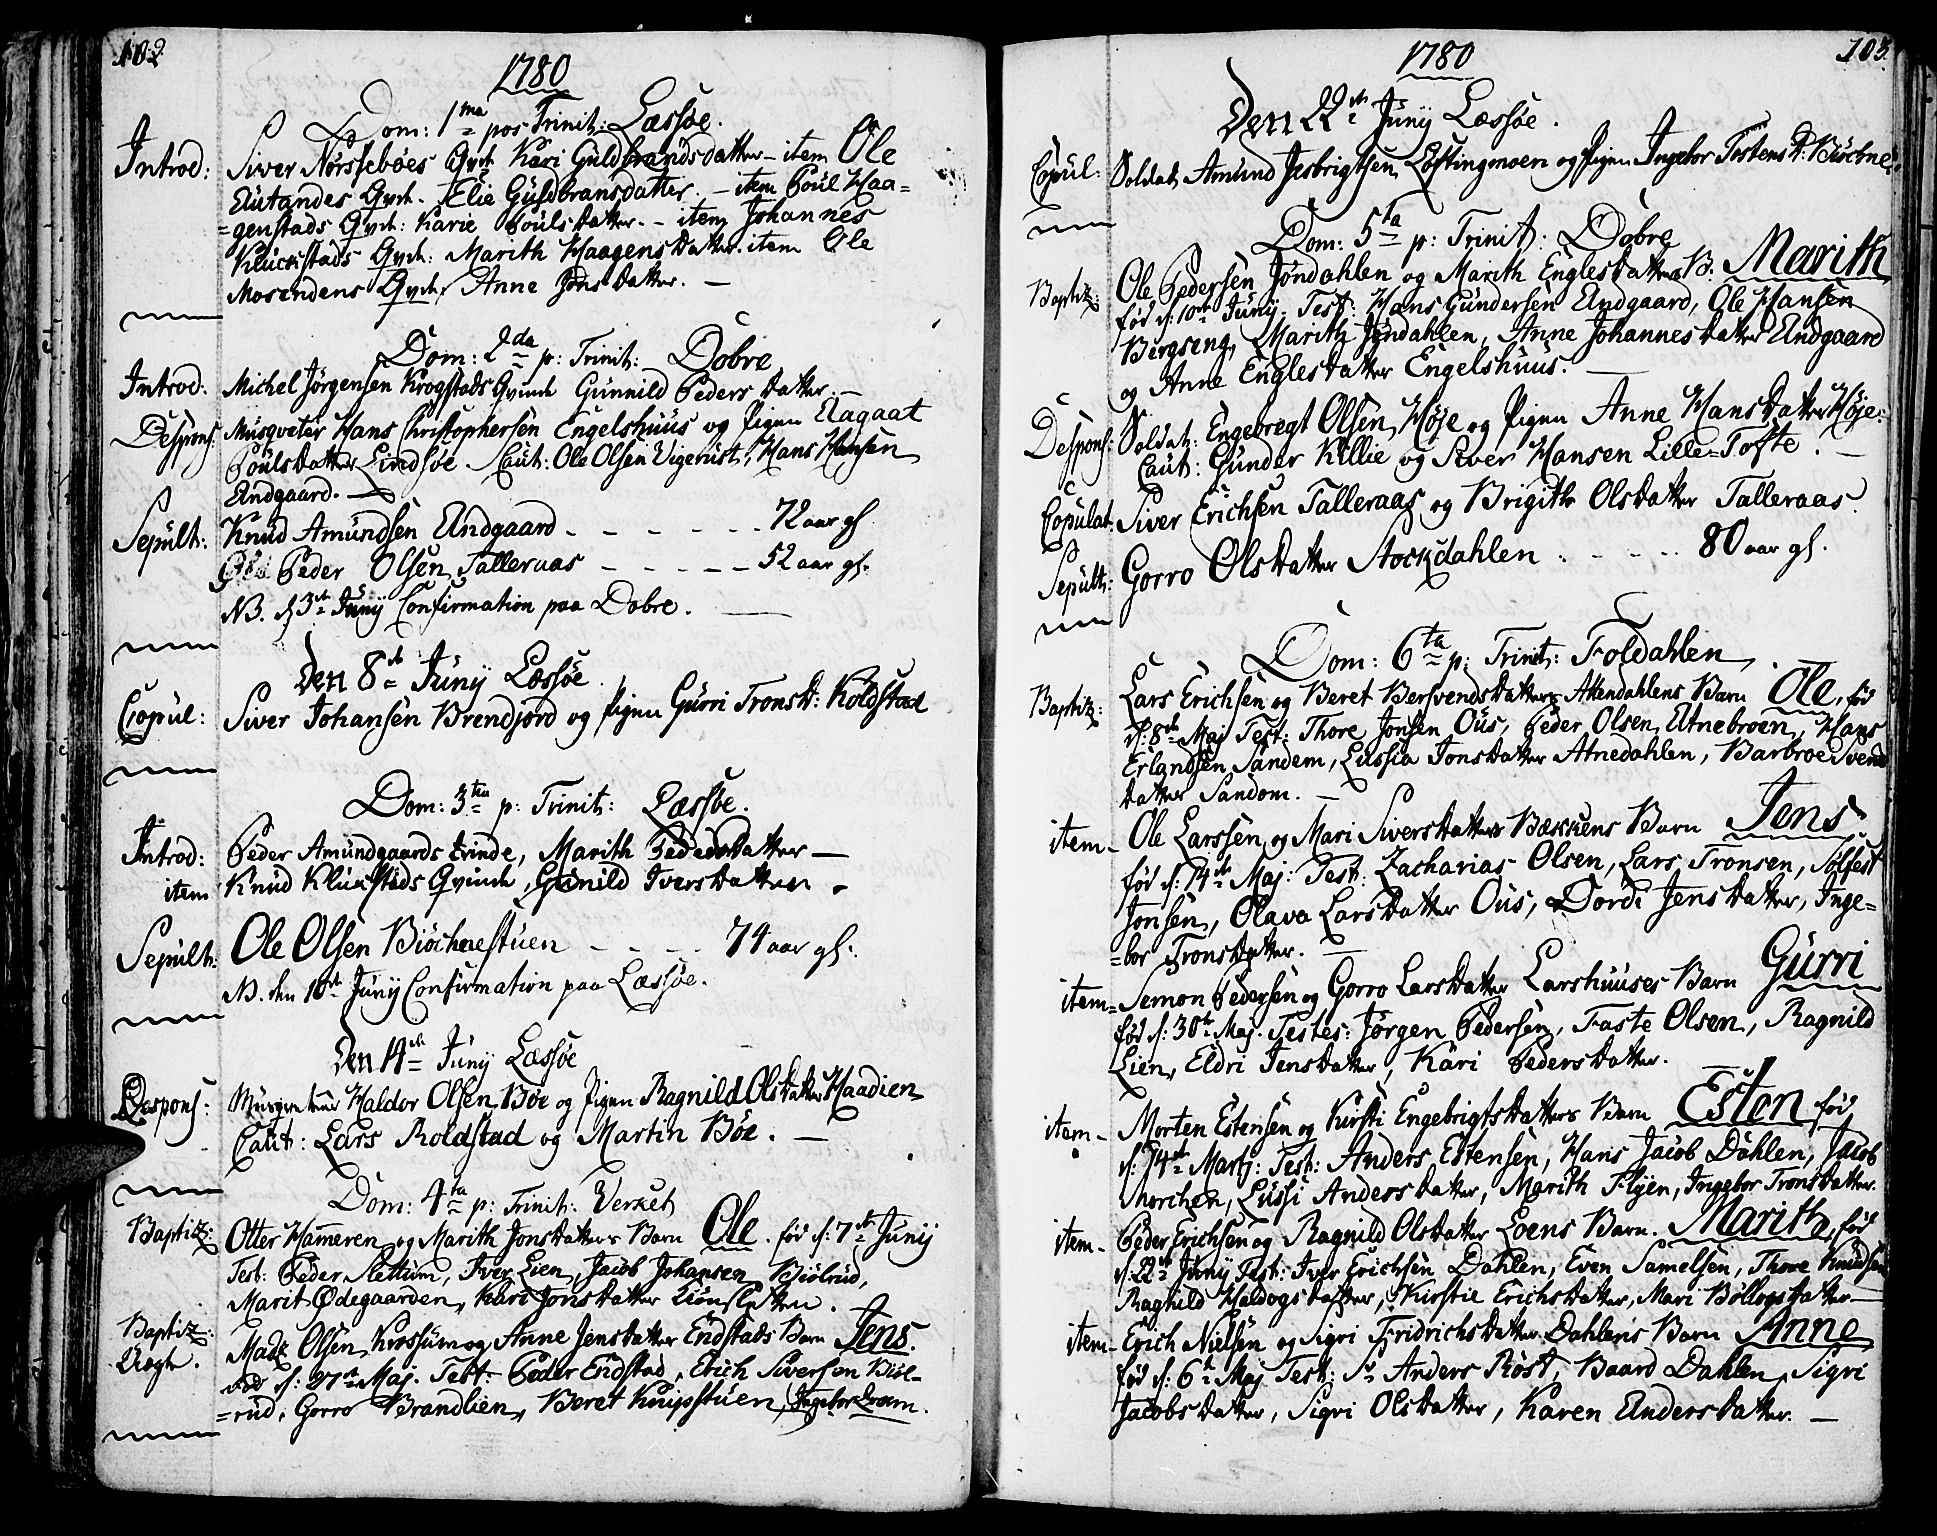 102
1780
Dom: 1ma pos Trinit: Læssøe.
Introd: Siver Norstebøes Qvd: Kari Guldbrandsdatter - item Ole
Qvd. Elie Guldbransdatter. - item Poul Haa=
=genstads Qvd: Karie Poulsdatter. - item Johannes
Kluckstads Qvd: Marith Haagensdatter. item Ole
Mosendens Qvd: Anne Jonsdatter. -
Dom: 2da p: Trinit: Dobre
Introd: Michel Jørgensen Krogstads Qvinde Gunnild Pedersdatter. -
Despons: Musqveteer Hans Christophersen Engelshuus og Pigen Aagaat
Poulsdatter Lindsøe Caut: Ole Olsen Vigerust, Hans Hansen
Andgaard. -
Sepult: Knud Amundsen Andgaard - - - - - - 72 aar gl.
Peder Olsen Talleraas - - - - - 52 aar gl.
NB. d: 3de Junij Confirmation paa Dobre.
Den 8de Junij Læssøe.
Copul: Siver Johansen Brendjord og Pigen Gurri Tronsd: Koldstad
Dom: 3tia p: Trinit: Læssøe.
Introd: Peder Amundgaards Qvinde, Marith Pedersdatter -
item Knud Kluckstads Qvinde, Gunild Iversdatter -
Sepult: Ole Olsen Biöchnestuen - - - - 74 aar gl.
NB. den 10de Junij Confirmation paa Læssøe.
Den 14de Junij Læssøe
Despons: Musqveteer Haldor Olsen Bøe og Pigen Ragnild Olsdatter Haadien
Caut: Lars Koldstad og Martin Bøe. -
Dom: 4ta p: Trinit: Verket
Baptiz: Otter Hameren og Marith Jonsdatters Barn Ole. fød d: 7de Junij
Test: Peder Slettum, Iver Lien, Jacob Johansen Kiølrud,
Marit Ødegaarden, Kari Jonsdatter
Baptiz: Madz Olsen Krossum og Anne Jensdatter Endstads Barn Jens.
Uægte. fød d: 27de Maj. Test: Peder Endstad, Erich Siversen Kiøl=
=rud, Gorro Brandlien, Beret Knipstuen, Ingebor
103.
1780
Den 22de Junij Læssøe.
Copul: Soldat Amund Jesbrigtsen Løftingmoen og Pigen Ingebor Tostensd: Biöchne
Dom: 5ta p: Trinit: Dobre
Baptiz: Ole Pedersen Jøndahlen og Marith Englesdatters B. Marith
fød d: 10de Junij. Test: Hans Gundersen Andgaard, Ole Hansen
Bergseng, Marith Jøndahlen, Anne Johannesdatter Andgaard
og Anne Englesdatter Engelshuus. -
Despons: Soldat: Engebregt Olsen Høje og Pigen Anne Hansdatter Høje:
Caut: Gunder Killie og Siver Hansen Lille=Tofte. -
Copulat: Siver Erichsen Talleraas og Brigithe Olsdatter Talleraas.
Sepult: Gorro Olsdatter Stockdahlen - - - - - 80 aar gl.
Dom: 6ta p: Trinit: Foldahlen.
Baptiz: Lars Erichsen og Beret Bersvendsdatters Attendahlens Barn Ole, fød
d: 8de Maj Test: Thore Jonsen Ous, Peder Olsen Atnebroen, Hans
Erlandsen Sandem, Lussia Jonsdatter Atnedahlen, Barbroe Svends
datter Sandom. -
item - Ole Larssen og Mari Siversdatters Bækkens Barn Jens
fød d: 14de Maj: Test: Zacharias Olsen, Lars Tronsen, Solfest
Jonsen, Olava Larsdatter Ous, Dordi Jensdatter, Inge=
=bor Tronsdatter. -
item - Semon Pedersen og Gorro Larsdatter Larshuuses Barn Gurri
fød d: 30te Maj. Testes: Jørgen Pedersen, Faste Olsen, Ragnild
Lien, Eldri Jensdatter, Kari Pedersdatter.
item - Morten Estensen og Kirsti Engebrigtsdatters Barn Esten fød
d: 14de Martj: Test: Anders Estensen, Hans Jacob Dahlen, Jacob
Morchen, Lussi Andersdatter, Marith Flyen, Ingebor Tronsdatter.
item - Peder Erichsen og Ragnild Olsdatter Loens Barn. Marith, fød
d: 22de Junij Test: Iver Erichsen Dahlen, Even Samelsen, Thore Knudsen
Ragnild Haldogsdatter, Kirstie Erichsdatter, Mari
item - Erich Nielsen og Sigri Fridrichsdatter Dahlens Barn Anne
fød d: 6te Maj Test: Sr Anders Røst, Baard Dahlen, Sigri
Jacobsdatter, Sigri Olsdatter, Karen Andersdatter. -